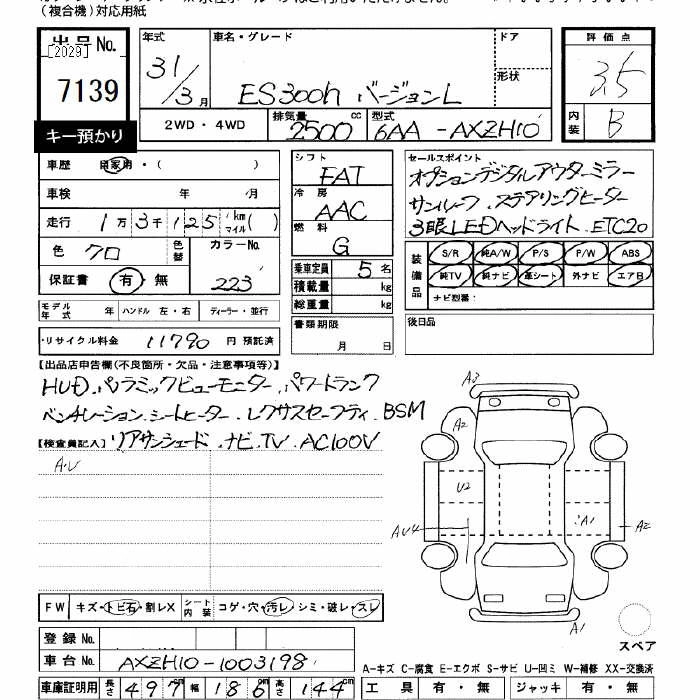 (複合機)対応用紙
出品No.
[2029]
7139
キー預かり
年式 車名・グレード ドア
31/3月 ES300h バージョンL 形状
2WD・4WD 排気量 2500 cc 型式 6AA-AXZH10
評価点
3.5
内装 B
車歴 自家用・( )
車検 年 月
走行 1万3千125 km マイル( )
色 クロ 色替 カラーNo. 223
保証書 有・無
シフト FAT
冷房 AAC
燃料 G
乗車定員 5名
積載量 kg
総重量 kg
セールスポイント
オプションデジタルアウターミラー
サンルーフ.ステアリングヒーター
3眼LEDヘッドライト.ETC2.0
装備品 S/R 純A/W P/S P/W ABS
純TV 純ナビ 革シート 外ナビ エアB
ナビ型番:
モデル年式 年 ハンドル 左・右 ディーラー・並行
書類期限 月 日
後日品
・リサイクル料金 11790 円 預託済
【出品店申告欄(不良箇所・欠品・注意事項等)】
HUD.パノラミックビューモニター.パワートランク
ベンチレーション.シートヒーター.レクサスセーフティ.BSM
【検査員記入】リアサンシェード.ナビ.TV.AC100V
A.U
A3
A2
U2
AU4
A1
A2
A1
スペア
FW キズ・トビ石・割レX シート内装 コゲ・穴・汚レ・シミ・破レ・スレ
登録No.
車台No. AXZH10-1003198
車庫証明用 長さ 497cm 幅 186cm 高さ 144cm
A-キズ C-腐食 E-エクボ S-サビ U-凹ミ W-補修 XX-交換済
工具 有・無 ジャッキ 有・無